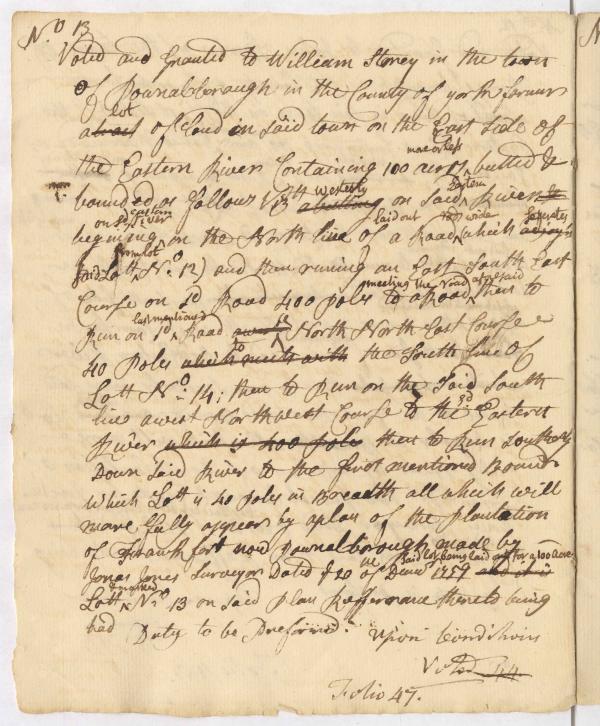 N.o 13
Voted and Granted to William Storey in the town
of Pownalborough in the County of york forever
lot
a tract of Land in said town on the East side of
more or less
the Eastern River Containing 100 acres, butted &
Westerly Eastern
bounded as follows Viz.t abutting on said River
on sd. eastern River laid out wide separates
begining on the North line of a Road which
said Lott N.o 12) and then runing an East South East
meeting the road aforesaid
Course on s.d Road 400 poles to a Road then to
last mentioned
Run on s.d Road North North East Course
to
40 Poles which meets with the South line of
Lott N.o 14; then to Run on the Said South
line a west North west Course to the s.d Eastern
River which is 400 poles then to Run Southerly
Down Said River to the first mentioned Bounds
Which Lott is 40 poles in Breadth all which will
more fully appear by a plan of the Plantation
of Frankfort now Pownalborough made by
said lot being laid out for a 100 acre
Jonas Jones Surveyor Dated 20 of Decem.r 1759 and it is
marked
Lott N.o 13 on said plan Refferance thereto being
had Duty to be Preformed. Upon Conditions
Voted
Folio 47.